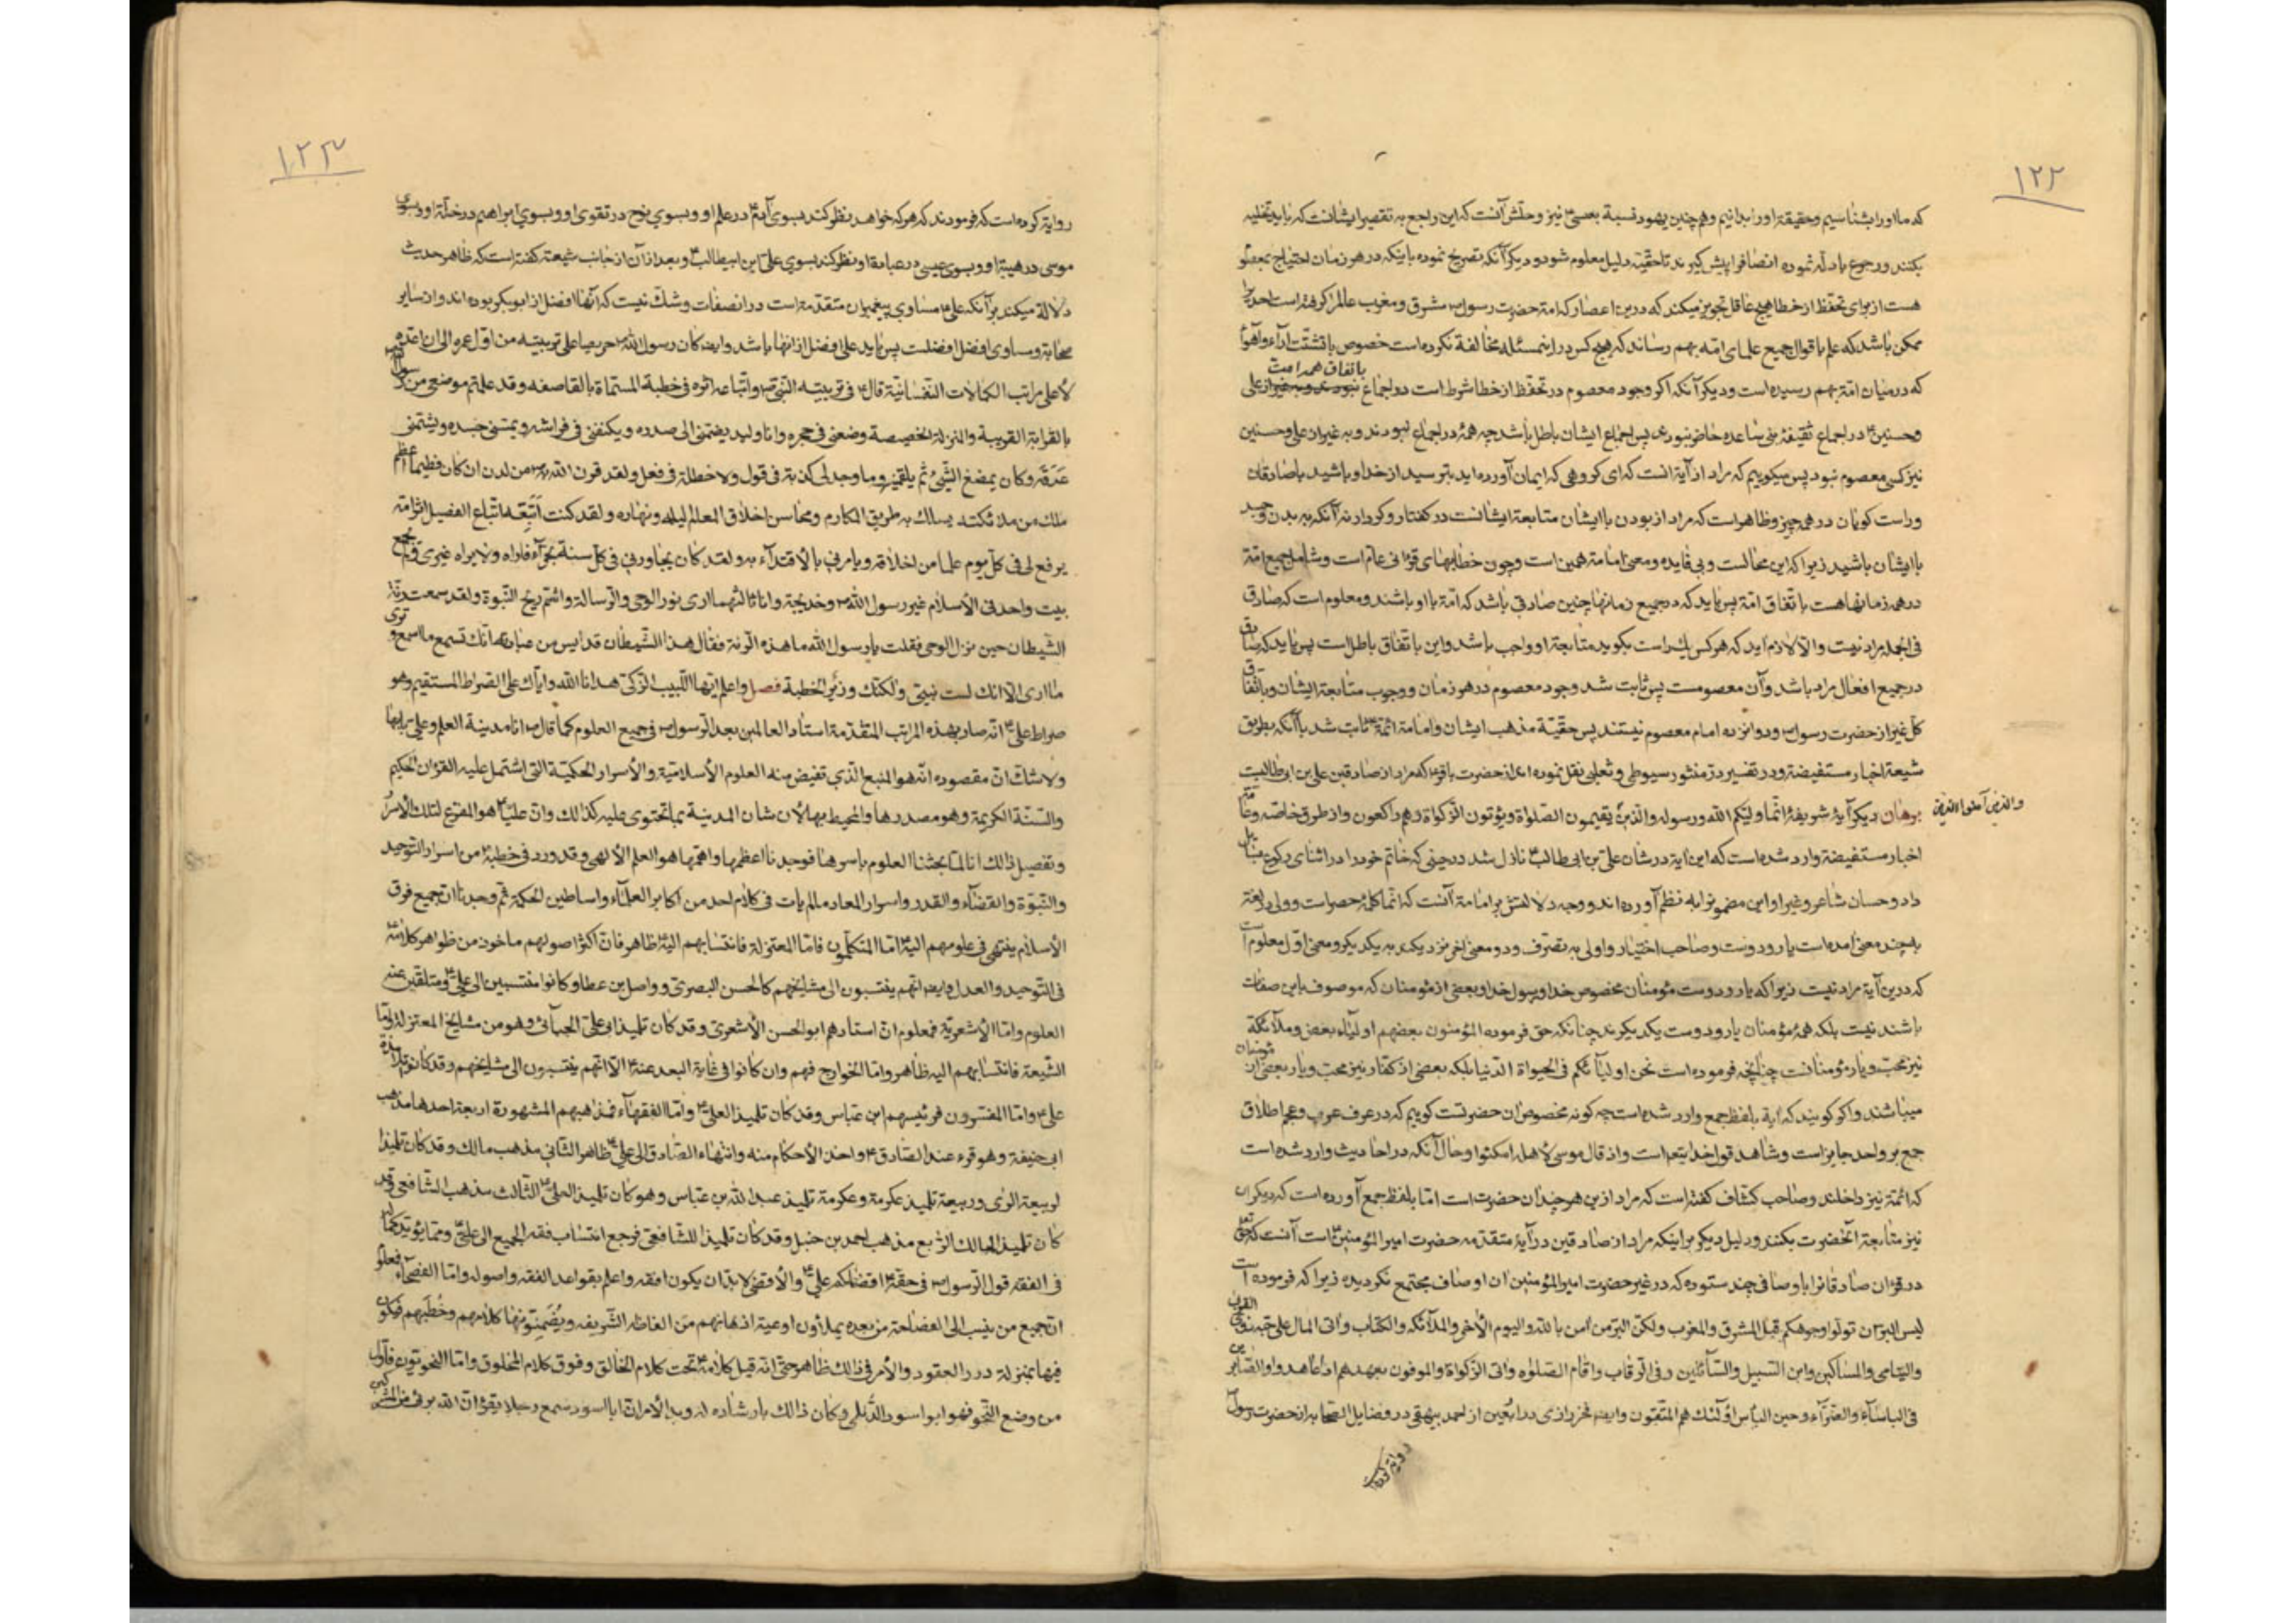 ۱۲۲
که ما او را بشناسیم و حقیقة او را بدانیم و هم چنین یهود نسبة بعیسی ع نیز و حلش آنست که این راجع به تقصیر ایشانست که باید تخلیه
بکنند و رجوع بادله نموده انصاف را پیش گیرند تا حقیة دلیل معلوم شود و دیگر آنکه تصریح نموده باینکه در هر زمان احتیاج بمعصوم
هست از برای تحفظ از خطا هیچ عاقل تجویز میکند که درین اعصار که امة حضرت رسول ص مشرق و مغرب عالم را گرفته است احدیرا
ممکن باشد که علم باقوال جمیع علمای امة بهم رساند که هیچ کس در این مسئله مخالفة نکرده است خصوص با تشتت آراء و اهواء
باتفاق همه امت
که در میان امة بهم رسیده است و دیگر آنکه اگر وجود معصوم در تحفظ از خطا شرط است در اجماع علی
و حسنین ع در اجماع ثقیفۀ بنی ساعده حاضر نبودند پس اجماع ایشان باطل باشد چه همۀ در اجماع نبودند و به غیر از علی و حسنین
نیز کسی معصوم نبود پس میگوییم که مراد از آیة انست که ای گروهی که ایمان آورده اید بترسید از خدا و باشید با صادقان
و راست گویان در همه چیز و ظاهر است که مراد از بودن با ایشان متابعة ایشانست در گفتار و کردار نه آنکه به بدن و جسد
با ایشان باشید زیرا که این محالست و بی فایده و معنی امامة همین است و چون خطابهای قرانی عام است و شامل جمیع امة
در همه زمانها هست باتفاق امة پس باید که در جمیع زمانها چنین صادقی باشد که امة با او باشند و معلوم است که صادق
فی الجمله مراد نیست و الا لازم اید که هر کس یک راست بگوید متابعة او واجب باشد و این باتفاق باطل است پس باید که صادق
در جمیع افعال مراد باشد و آن معصومست پس ثابت شد وجود معصوم در هر زمان و وجوب متابعة ایشان و باتفاق
کل غیر از حضرت رسول ص و دوانزده امام معصوم نیستند پس حقیة مذهب ایشان و امامة ائمة ع ثابت شد با آنکه بطریق
شیعة اخبار مستفیضة و در تفسیر در منثور سیوطی و ثعلبی نقل نموده اند از حضرت باقر ع که مراد از صادقین علی بن ابی طالبست
والذین آمنوا الذین
برهان دیگر آیۀ شریفۀ انما ولیکم الله و رسوله والذین یقیمون الصلواة و یؤتون الزکواة و هم راکعون و از طرق خاصه و عامة
اخبار مستفیضة وارد شده است که این ایة در شان علی بن ابی طالب ع نازل شد در حینی که خاتم خود را در اثنای رکوع بسائل
داد و حسان شاعر و غیر او این مضمونرا به نظم آورده اند و وجه دلالتش بر امامة آنست که انما کلمۀ حصر است و ولی در لغة
به چند معنی امده است یار و دوست و صاحب اختیار و اولی به تصرف و دو معنی اخر نزدیکند به یکدیگر و معنی اول معلوم است
که درین آیة مراد نیست زیرا که یار و دوست مؤمنان مخصوص خدا و رسول خدا و بعضی از مؤمنان که موصوف باین صفات
باشند نیست بلکه همۀ مؤمنان یار و دوست یکدیگرند چنانکه حق فرموده المؤمنون بعضهم اولیاء بعض و ملائکة
نیز محب و یار مؤمنانست چنانچه فرموده است نحن اولیائکم فی الحیواة الدنیا بلکه بعضی از کفار نیز محب و یار بعضی از مؤمنان
میباشند و اگر گویند که ایة بلفظ جمع وارد شده است چه گونه مخصوص ان حضرتست گوییم که در عرف عرب و عجم اطلاق
جمع بر واحد جایز است و شاهد قول خدایتعالی است و اذ قال موسی لاهله امکثوا و حال آنکه در احادیث وارد شده است
که ائمة نیز داخلند و صاحب کشاف گفته است که مراد ازین هر چند ان حضرت است اما بلفظ جمع آورده است که دیگران
نیز متابعة آنحضرت بکنند و دلیل دیگر بر اینکه مراد از صادقین در آیة متقدمه حضرت امیر المؤمنین ع است آنست که حق تعالی
در قران صادقانرا باوصافی چند ستوده که در غیر حضرت امیر المؤمنین ان اوصاف مجتمع نگردیده زیرا که فرموده است
لیس البر ان تولوا وجوهکم قبل المشرق والمغرب ولکن البر من امن بالله والیوم الأخر والملائکه والکتاب واتی المال علی حبه ذوی القربی
والیتامی والمساکین وابن السبیل والسائلین وفی الرقاب واقام الصلوه واتی الزکواة والموفون بعهدهم اذا عاهدوا والصابرین
فی الباساء والضراء وحین البأس اولئک هم المتقون وایضا فخر رازی در اربعین از احمد بیهقی در فضایل الصحابه از حضرت رسول
روایة کرده است
۱۲۳
روایة کرده است که فرمودند که هر که خواهد نظر کند بسوی آدم ع در علم او و بسوی نوح در تقوی او و بسوی ابراهیم در خلة او و بسوی
موسی در هیبة او و بسوی عیسی در عبادة او نظر کند بسوی علی ابن ابیطالب ع و بعد از آن از جانب شیعة گفته است که ظاهر حدیث
دلالة میکند بر آنکه علی ع مساوی پیغمبران متقدمه است در انصفات و شک نیست که آنها افضل از ابوبکر بوده اند و از سایر
صحابة و مساوی افضل افضلست پس باید علی افضل از انها باشد وایضا کان رسول الله ص حریصا علی تربیته من اول عمره الی ان اعده
لأعلی مراتب الکمالات النفسانیة قال ع فی تربیته النبی ص واتباعه اثره فی خطبة المسماة بالقاصعه وقد علمتم موضعی من رسول الله
بالقرابة القریبة والمنزلة الخصیصة وضعنی فی حجره وانا ولید یضمنی الی صدره ویکنفنی فی فراشه ویمسنی جسده ویشمنی
عرقه وکان یمضغ الشیئ ثم یلقمنیه وما وجد لی کذبة فی قول ولا خطلة فی فعل ولقد قرن الله به ص من لدن ان کان فطیما اعظم
ملک من ملائکته یسالک به طریق المکارم ومحاسن اخلاق العالم لیله ونهاره ولقد کنت اتبعه اتباع الفصیل اثر امه
یرفع لی فی کل یوم علما من اخلاقه ویامرنی بالاقتداء به ولقد کان یجاور فی کل سنة بحراء فاراه ولا یراه غیری ولم یجمع
بیت واحد فی الأسلام غیر رسول الله ص وخدیجة وانا ثالثهما اری نور الوحی والرسالة واشم ریح النبوة ولقد سمعت رنة
الشیطان حین نزل الوحی فقلت یا رسول الله ما هذه الرنة فقال هذا الشیطان قد ایس من عبادته انک تسمع ما اسمع وتری
ما اری الا انک لست بنبی ولکنک وزیر الخطبة فصل واعلم ایها اللبیب الزکی هدانا الله وایاک علی الصراط المستقیم وهو
صراط علی ع انه صار بهذه المراتب المتقدمة استاد العالمین بعد الرسول ص فی جمیع العلوم کما قال ص انا مدینة العلم وعلی بابها
ولا شک ان مقصوده انه هو المنبع الذی تفیض منه العلوم الأسلامیة والأسرار الحکمیة التی اشتمل علیه القران الحکیم
والسنة الکریمة وهو مصدرها والمحیط بها لأن شان المدینة بما تحتوی علیه کذالک وان علیا ع هو المفزع لتلک الأسرار
وتفصیل ذالک انا لما بحثنا العلوم باسرها فوجدنا اعظمها واهمها هو العلم الألهی وقد ورد فی خطبة ع من اسرار التوحید
والنبوة والقضاء والقدر واسرار المعاد ما لم یات فی کلام احد من اکابر العلماء واساطین الحکمة ثم وجدنا ان جمیع فرق
الأسلام ینتهی فی علومهم الیه اما المتکلمون فاما المعتزلة فانتسابهم الیه ظاهر فان اکثر اصولهم ماخوذ من ظواهر کلامه
فی التوحید والعدل وایضا انهم ینتسبون الی مشایخهم کالحسن البصری وواصل بن عطا وکانوا منتسبین الی علی ع ومتلقین عنه
العلوم واما الأشعریة فمعلوم ان استادهم ابو الحسن الأشعری وقد کان تلمیذ ابی علی الجبائی وهو من مشایخ المعتزلة واما
الشیعة فانتسابهم الیه ظاهر واما الخوارج فهم وان کانوا فی غایة البعد عنه الا انهم ینتسبون الی مشایخهم وقد کانوا تلامذة
علی ع واما المفسرون فرئیسهم ابن عباس وقد کان تلمیذ العلی ع واما الفقهاء فمذاهبهم المشهورة اربعة احدها مذهب
ابی حنیفة وهو قرء عند الصادق ع واخذ الأحکام منه وانتهاء الصادق الی علی ع ظاهر الثانی مذهب مالک وقد کان تلمیذا
لربیعة الرای وربیعة تلمیذ عکرمة وعکرمة تلمیذ عبد الله بن عباس وهو کان تلمیذ العلی ع الثالث مذهب الشافعی وقد
کان تلمیذ المالک الرابع مذهب احمد بن حنبل وقد کان تلمیذا للشافعی فرجع انتساب فقه الجمیع الی علی ع ومما یؤید کماله
فی الفقه قول الرسول ص فی حقه ع اقضاکم علی ع والأقضی لا بد ان یکون افقه واعلم بقواعد الفقه واصوله واما الفصحاء فمعلوم
ان جمیع من ینسب الی الفصاحة من بعده یملأون اوعیة اذهانهم من الفاظه الشریفه ویضمنونها کلامهم وخطبهم فتکون
فیها بمنزلة درر العقود والأمر فی ذالک ظاهر حتی انه قیل کلامه ع تحت کلام الخالق وفوق کلام المخلوق واما النحویون فاول
من وضع النحو فهو ابو اسود الدئلی وکان ذالک بارشاده له وبدا الأمر ان ابا اسود سمع رجلا یقرء ان الله بریء من المشرکین